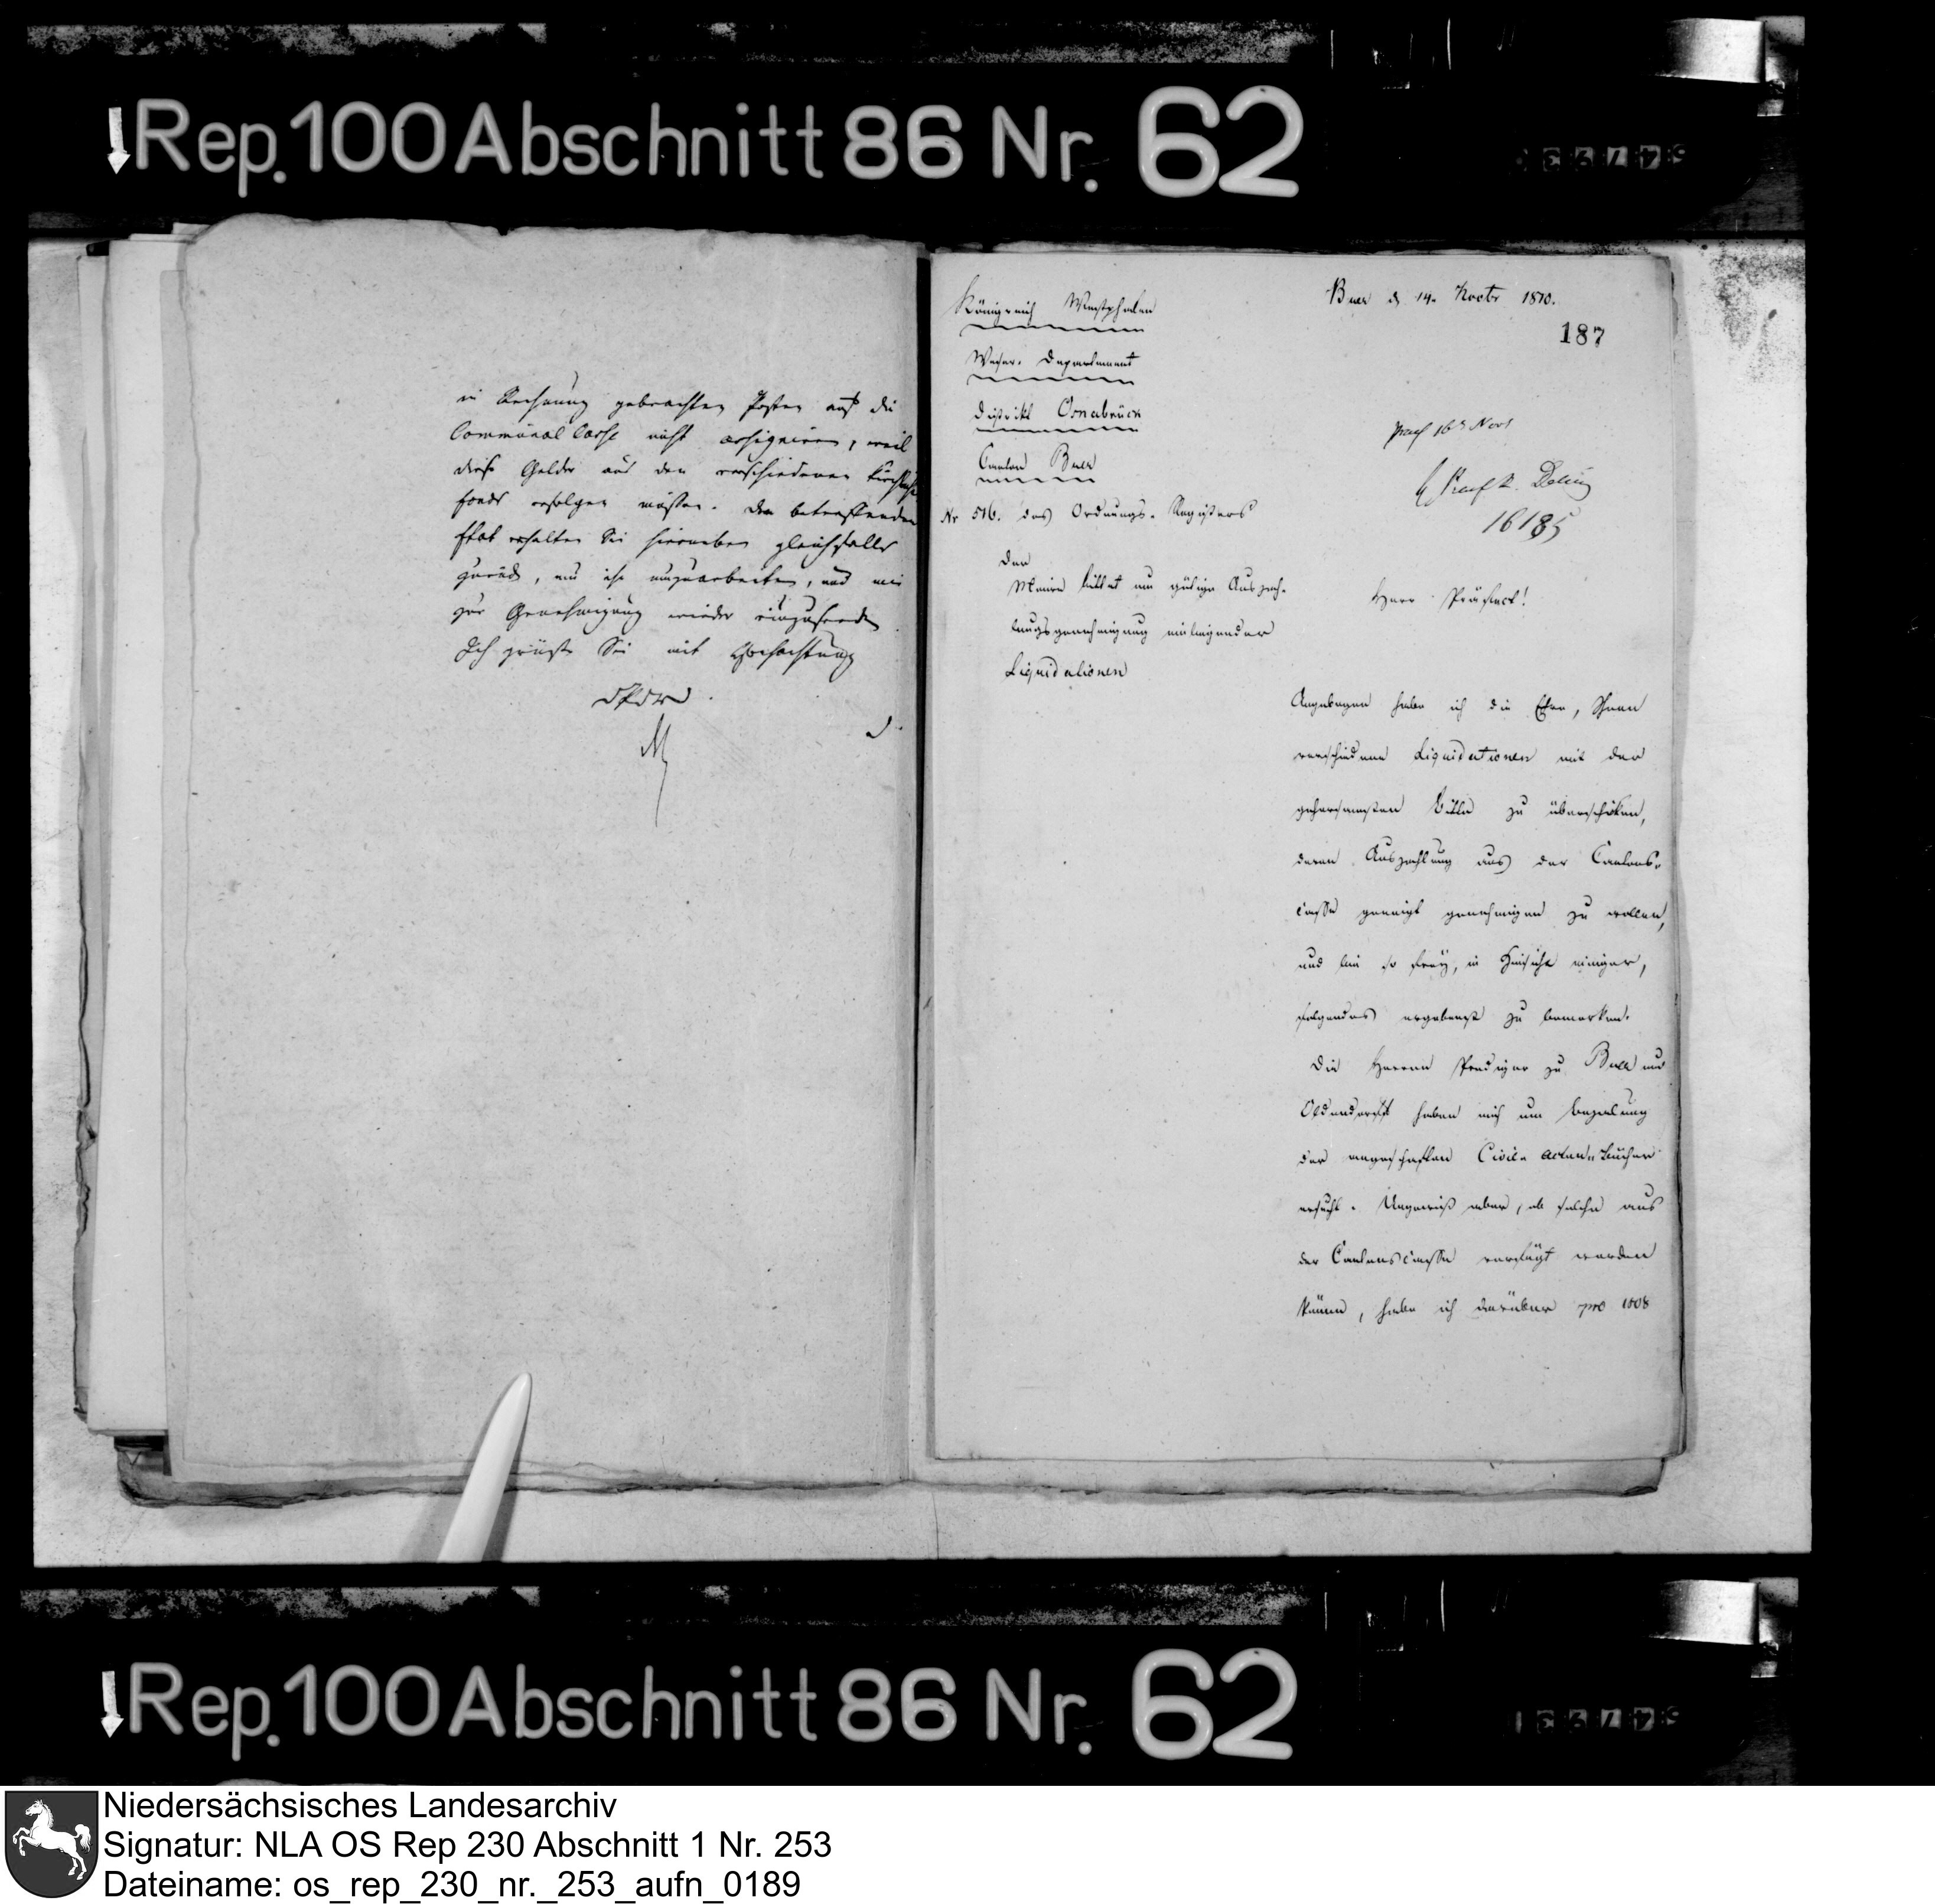 Rep. 100 Abschnitt 86 Nr. 62
in Rechnung gebrachten Posten auf die
Communal Casse nicht assigniren, weil
diese Gelder aus den verschiedenen Kirchen
fonds erfolgen müssen. Den betreffenden
Etat erhalten Sie hierneben gleichfalls
zurück, um ihn umzuarbeiten, und mir
zur Genehmigung wieder einzusenden
Ich grüße Sie mit Hochachtung
Königreich Westphalen
Weser-Departement
District Osnabrück
Canton Buer
Nr 516. des Ordnungs-Registers
Der
Maire bittet um gütige Auszah-
lungsgenehmigung einliegender
Liquidationen
Buer d 14. Novbr 1810.
187
16 Nov
16185
Herr Präfect!
Angebogen habe ich die Ehre, Ihnen
verschiedene Liquidationen mit der
gehorsamsten Bitte zu überschicken,
deren Auszahlung aus der Cantons-
casse geneigt genehmigen zu wollen,
und bin so frey, in Hinsicht einiger,
folgendes ergebenst zu bemerken.
Die Herren Prediger zu Buer und
Oldendorff haben mich um Bezahlung
der angeschafften Civil-Acten-Bücher
ersucht. Ungewiß aber, ob solche aus
der Cantonscasse verfügt werden
könne, habe ich darüber pro 1808
Rep. 100 Abschnitt 86 Nr. 62
Niedersächsisches Landesarchiv
Signatur: NLA OS Rep 230 Abschnitt 1 Nr. 253
Dateiname: os_rep_230_nr._253_aufn_0189